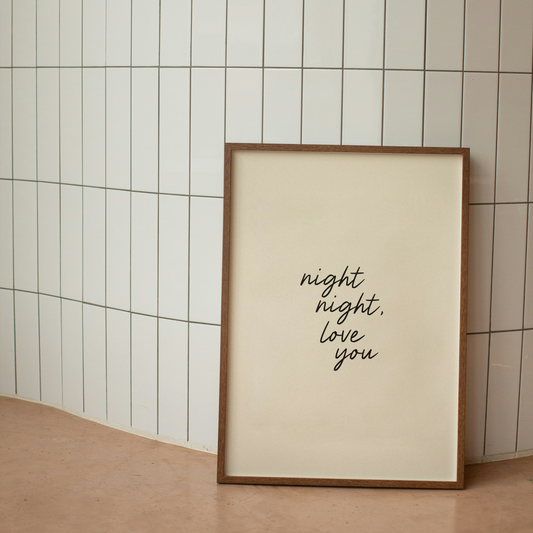 night
night,
love
you